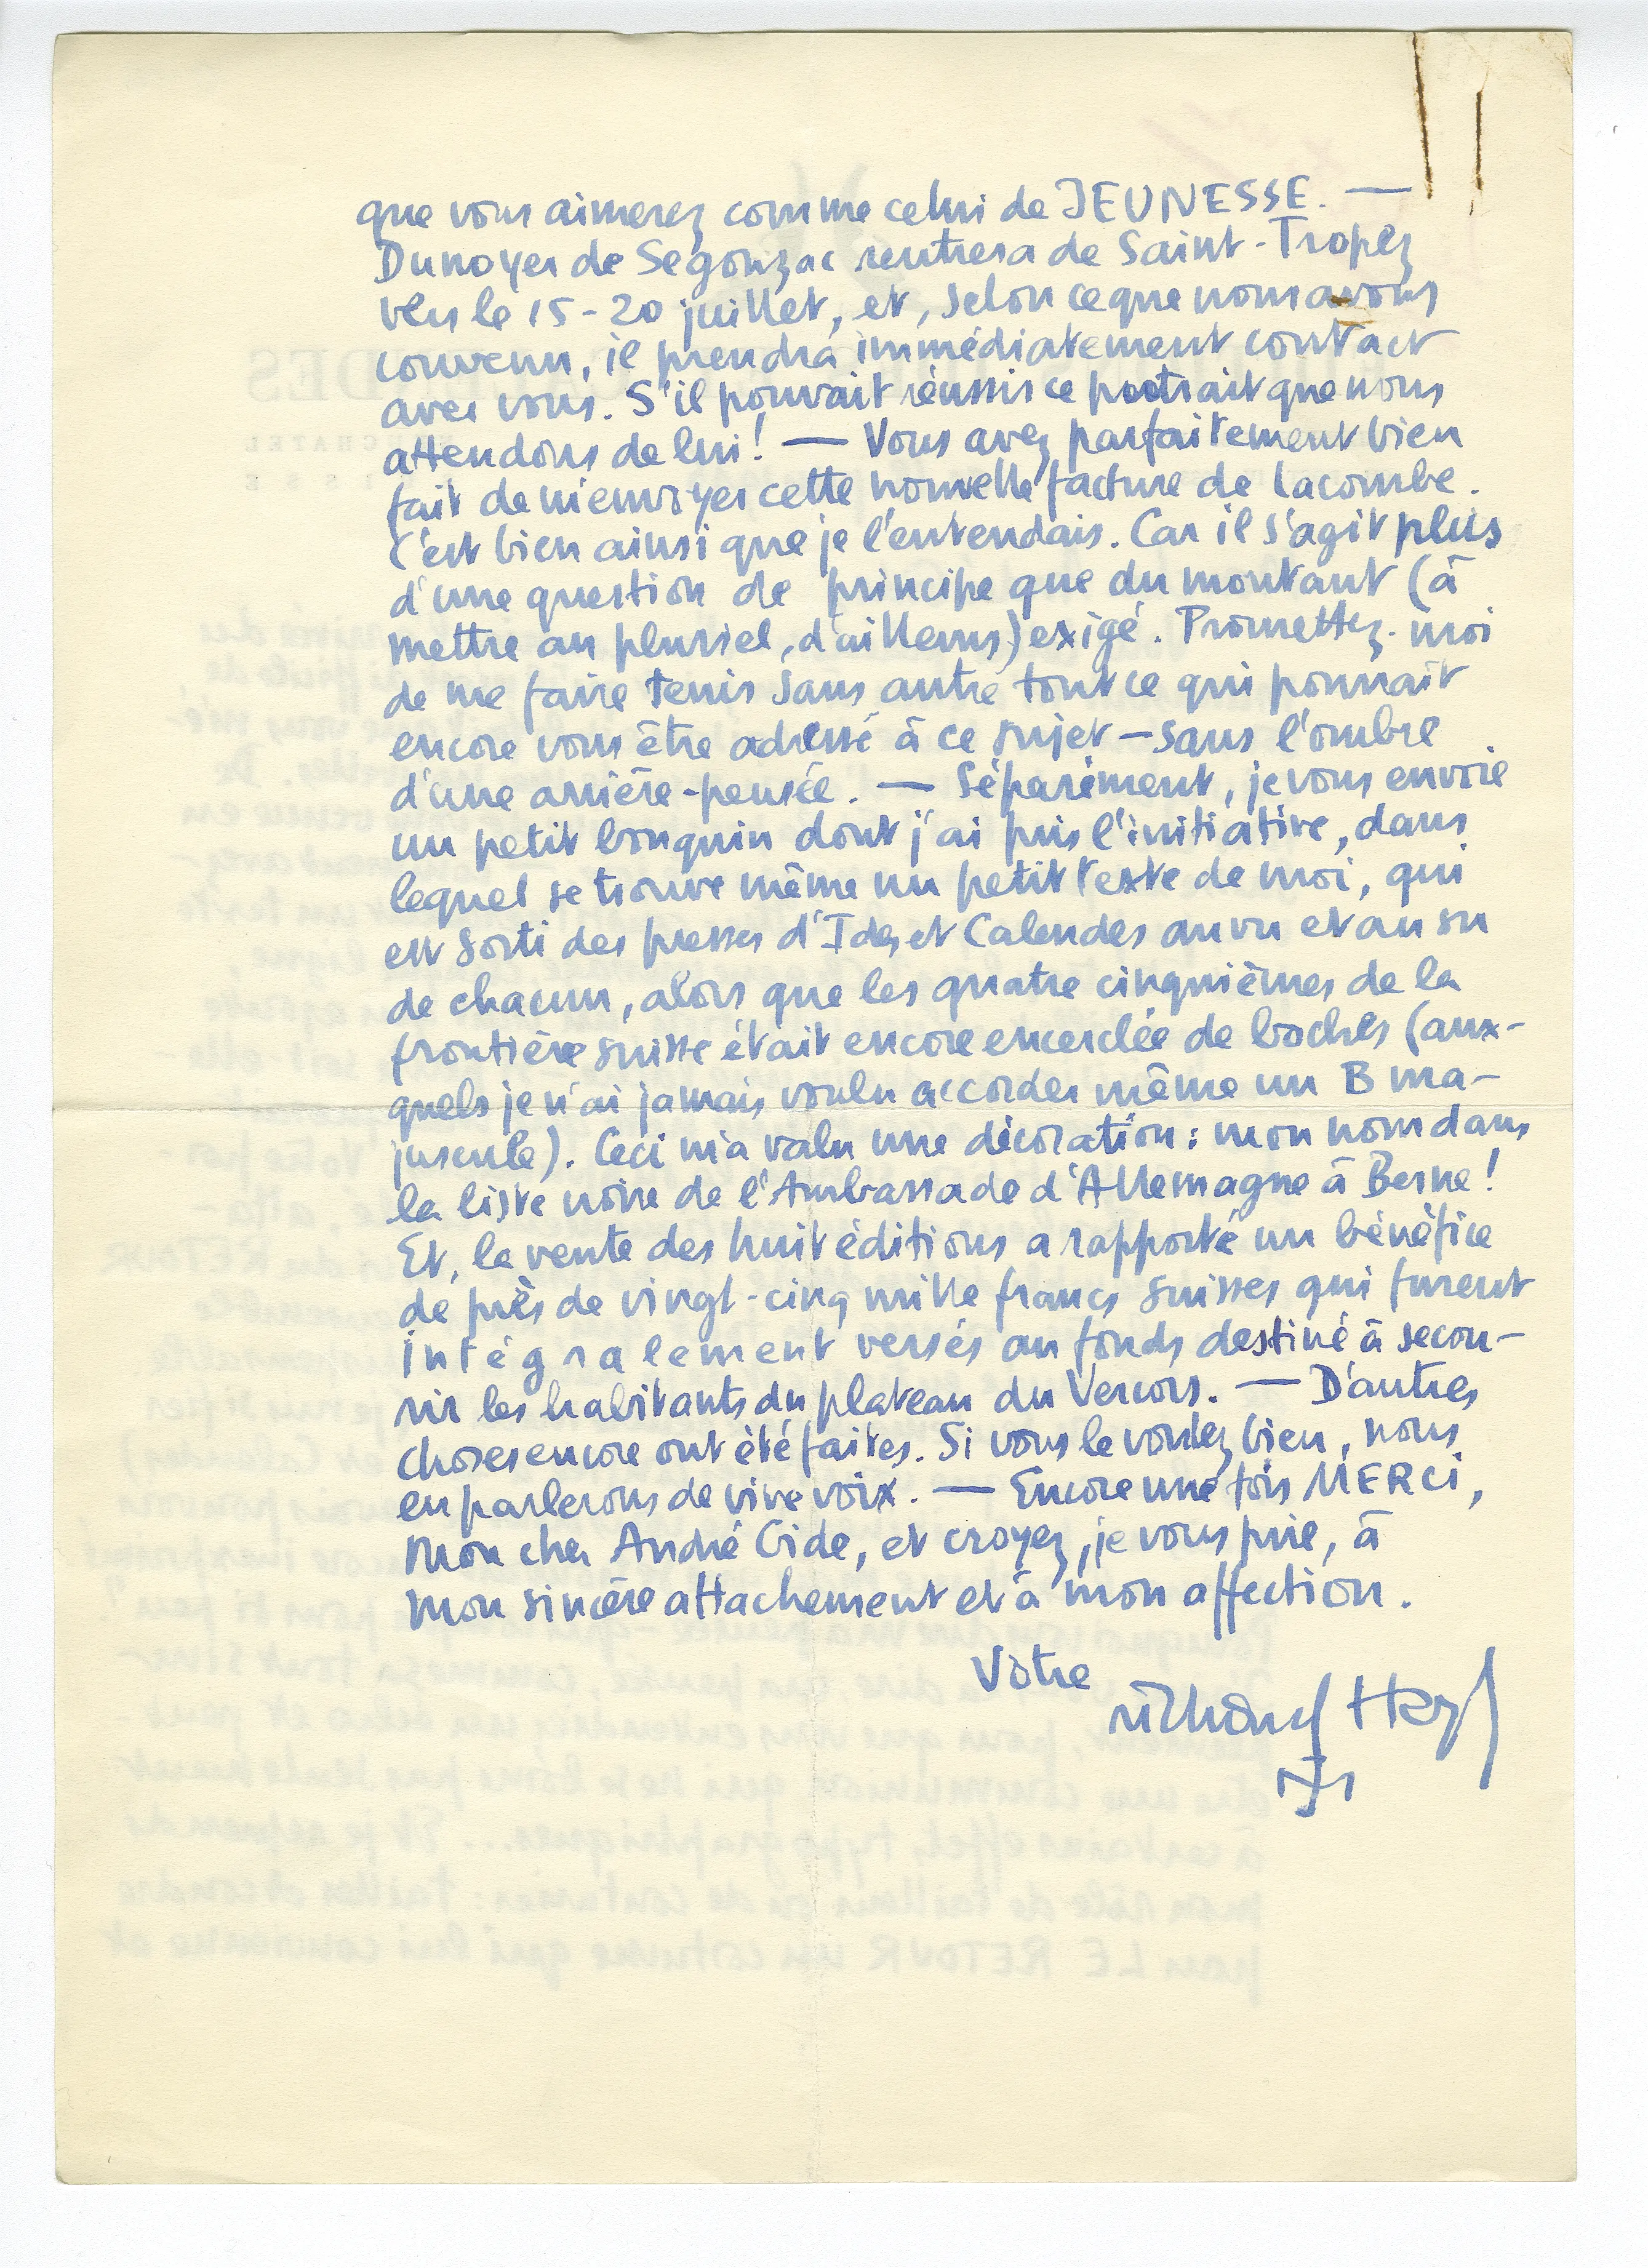 que vous aimerez comme celui de JEUNESSE. —
Dunoyer de Segonzac rentrera de Saint-Tropez
vers le 15-20 juillet, et, selon ce que nous avons
convenu, il prendra immédiatement contact
avec vous. S'il pouvait réussir ce portrait que nous
attendons de lui! — Vous avez parfaitement bien
fait de m'envoyer cette nouvelle facture de Lacombe.
C'est bien ainsi que je l'entendais. Car il s'agit plus
d'une question de principe que du montant (à
mettre au pluriel, d'ailleurs) exigé. Promettez-moi
de me faire tenir sans autre tout ce qui pourrait
encore vous être adressé à ce sujet — sans l'ombre
d'une arrière-pensée. — Séparément, je vous envoie
un petit bouquin dont j'ai pris l'initiative, dans
lequel se trouve même un petit texte de moi, qui
est sorti des presses d'Ides et Calendes au vu et au su
de chacun, alors que les quatre cinquièmes de la
frontière suisse était encore encerclée de boches (aux-
quels je n'ai jamais voulu accorder même un B ma-
juscule). Ceci m'a valu une décoration: mon nom dans
la liste noire de l'Ambassade d'Allemagne à Berne!
Et, la vente des huit éditions a rapporté un bénéfice
de près de vingt-cinq mille francs suisses qui furent
intégralement versés au fonds destiné à secou-
rir les habitants du plateau du Vercors. — D'autres
choses encore ont été faites. Si vous le voulez bien, nous
en parlerons de vive voix. — Encore une fois MERCI,
mon cher André Gide, et croyez, je vous prie, à
mon sincère attachement et à mon affection.
Votre
Richard Heyd